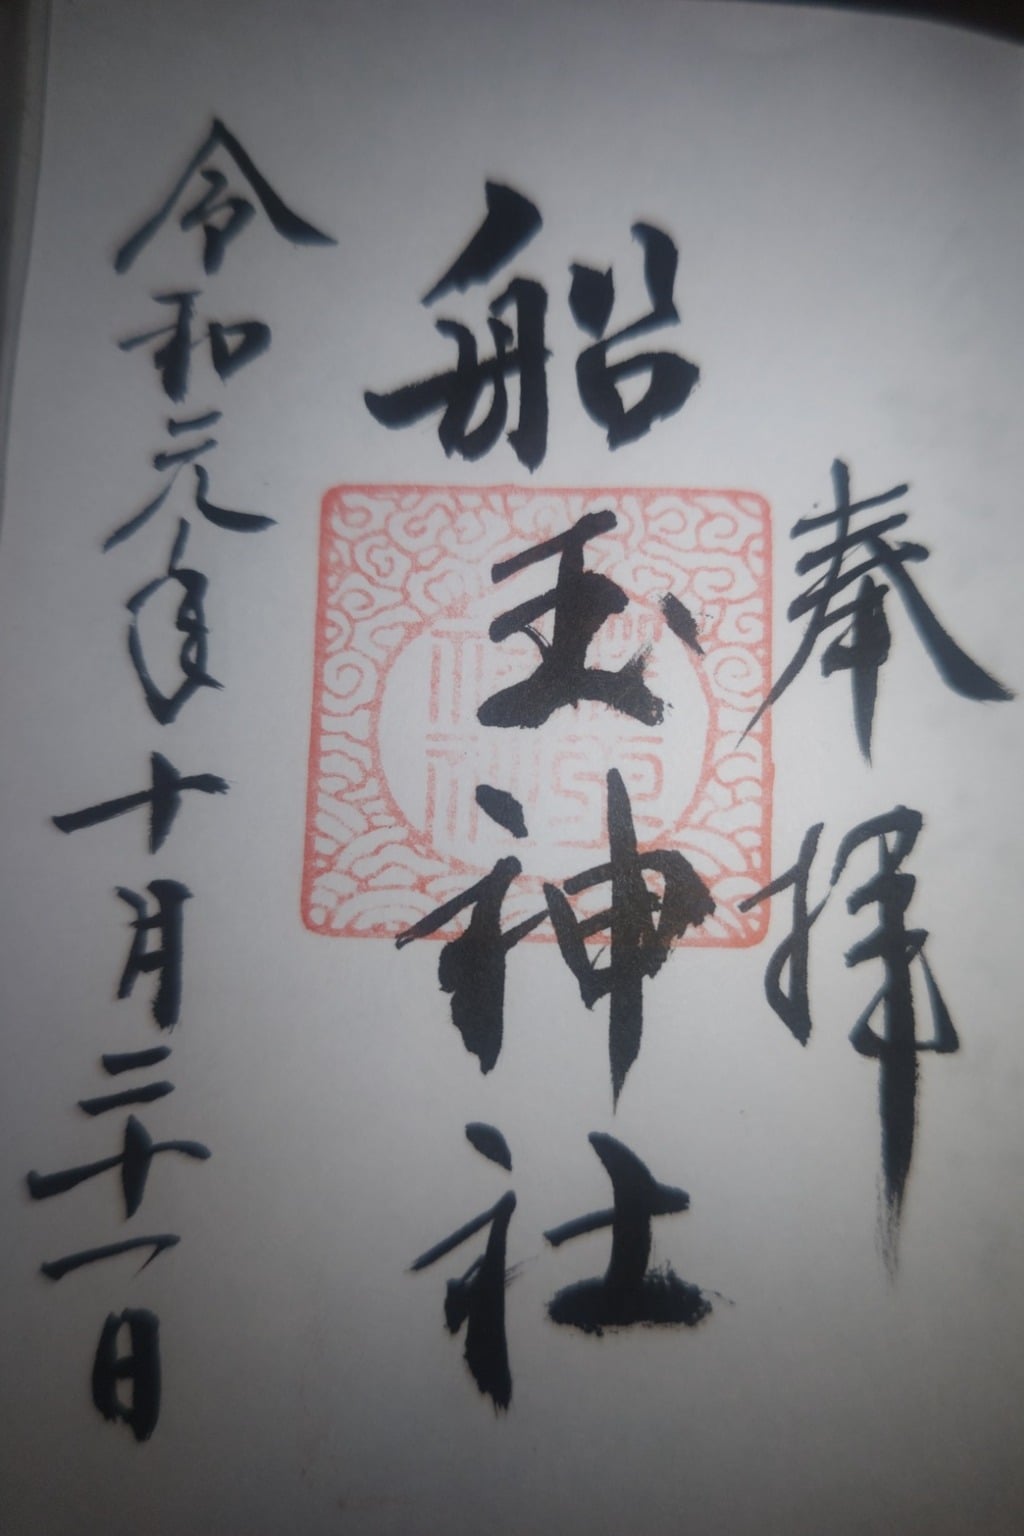 奉拝
船玉神社
令和元年十月二十一日